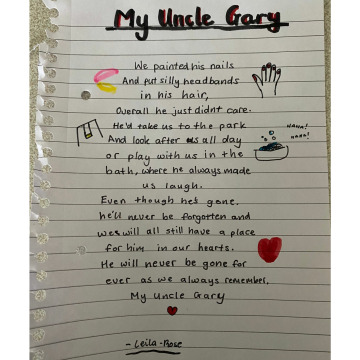 My Uncle Gary
We painted his nails
And put silly headbands
in his hair,
Overall he just didnt care.
He'd take us to the park
And look after us all day
or play with us in the
bath, where he always made
us laugh.
Even though he's gone.
he'll never be forgotten and
we will all still have a place
for him in our hearts.
He will never be gone for
ever as we always remember,
My Uncle Gary
- Leila-Rose